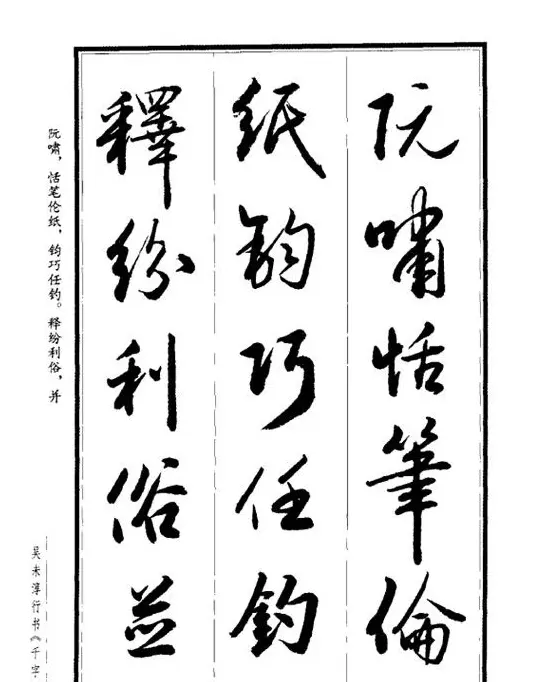 阮嘯恬筆倫
紙鈞巧任釣
釋紛利俗並
阮啸，恬笔伦纸，钧巧任钓。释纷利俗，并
吴未淳行书《千字